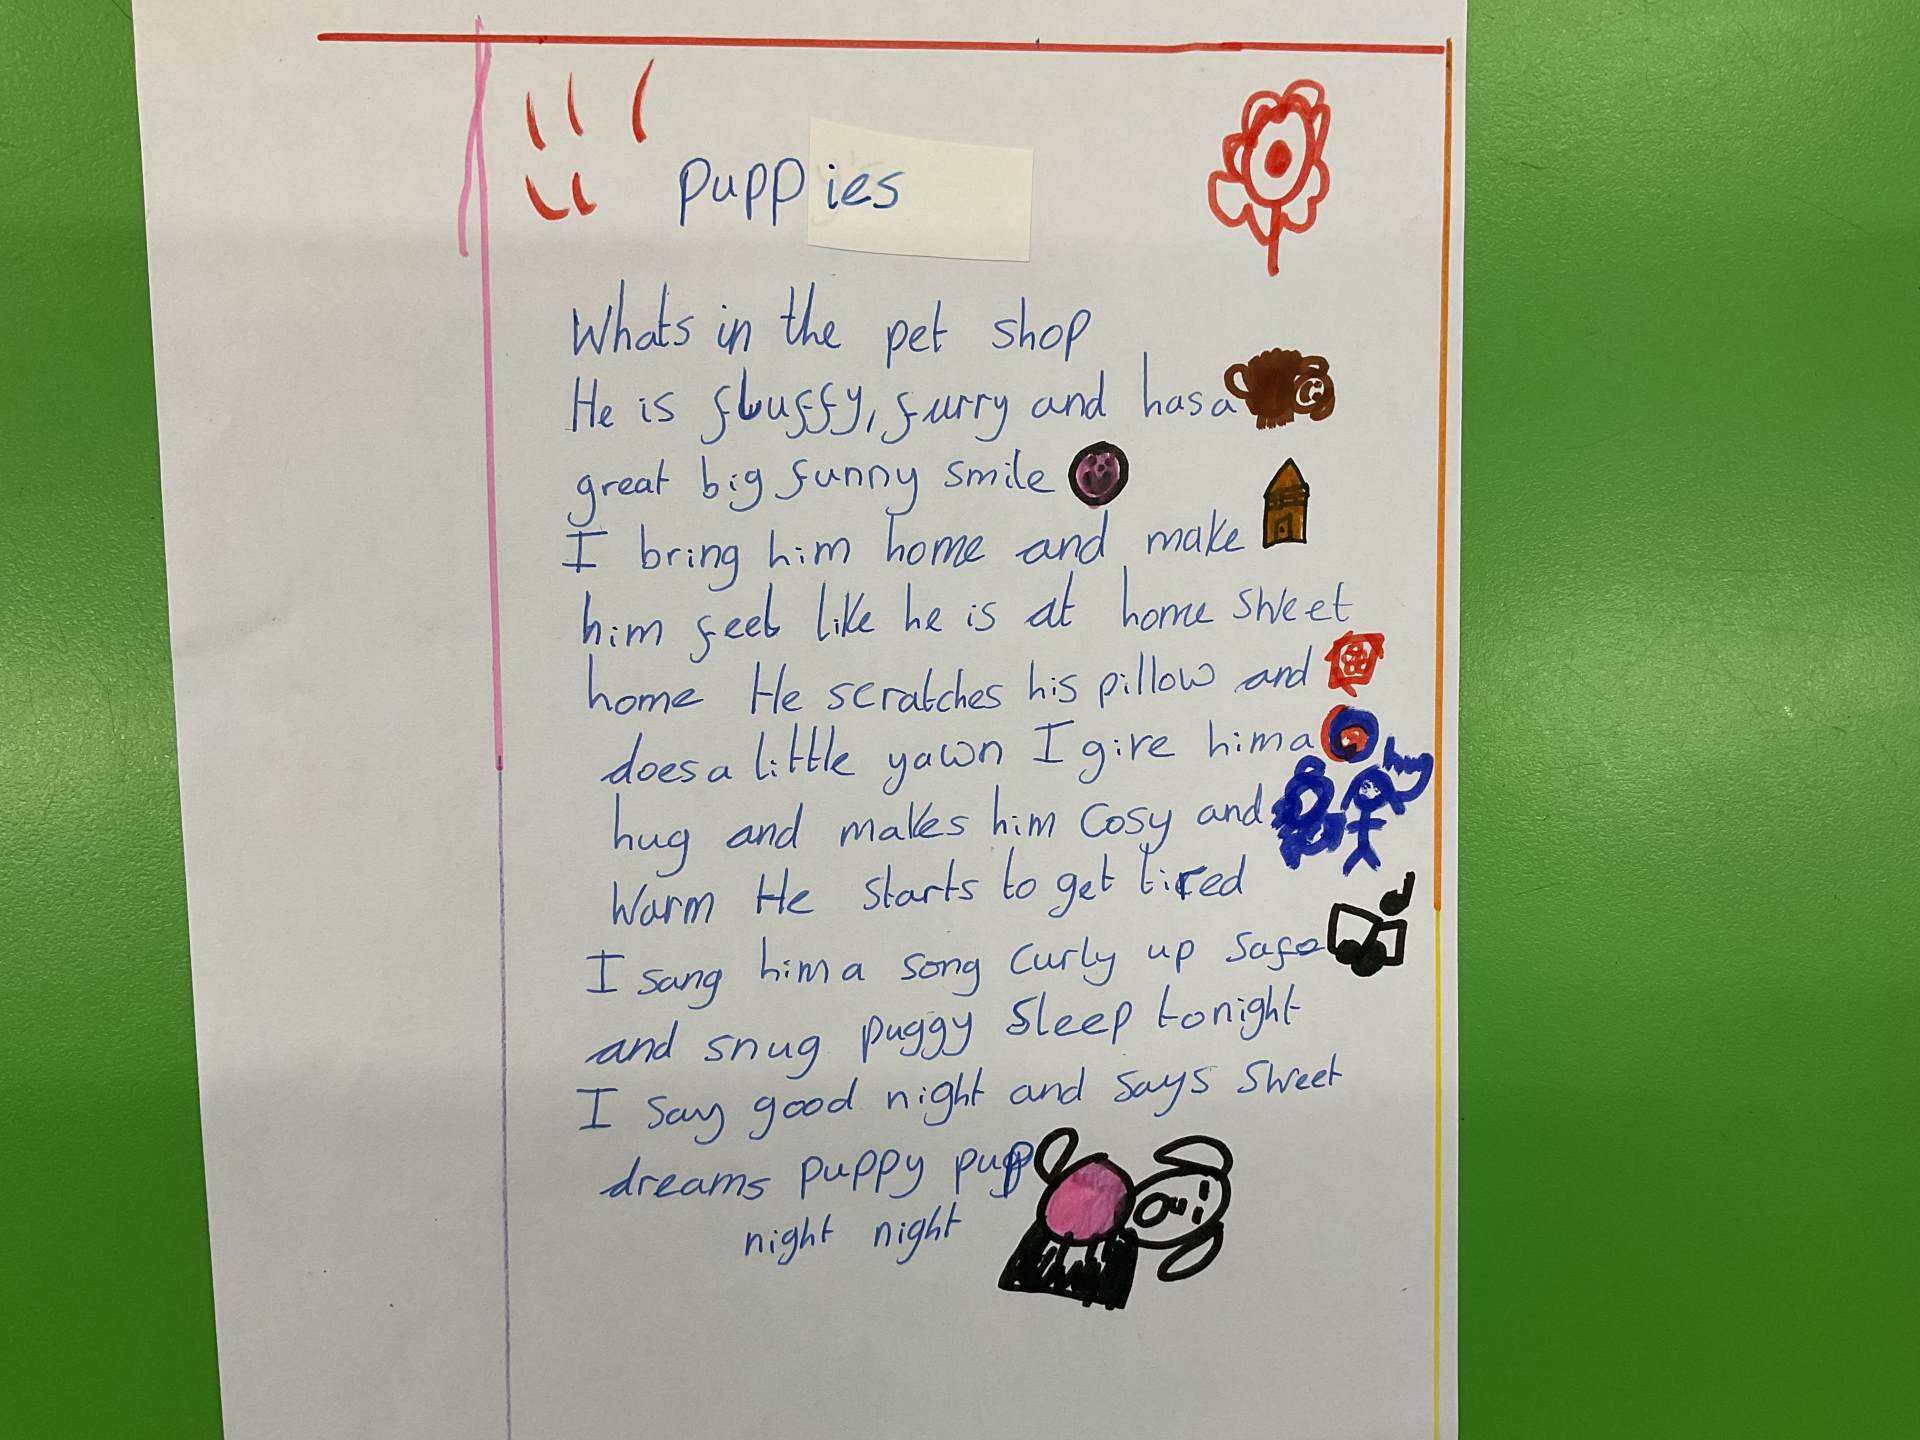 puppies
Whats in the pet shop
He is fluffy, furry and has a
great big funny smile
I bring him home and make
him feel like he is at home sweet
home He scratches his pillow and
does a little yawn I give him a
hug
hug and makes him cosy and
warm He starts to get tired
I sang him a song curly up safe
and snug puggy sleep tonight
I say good night and says sweet
dreams puppy pup
night night